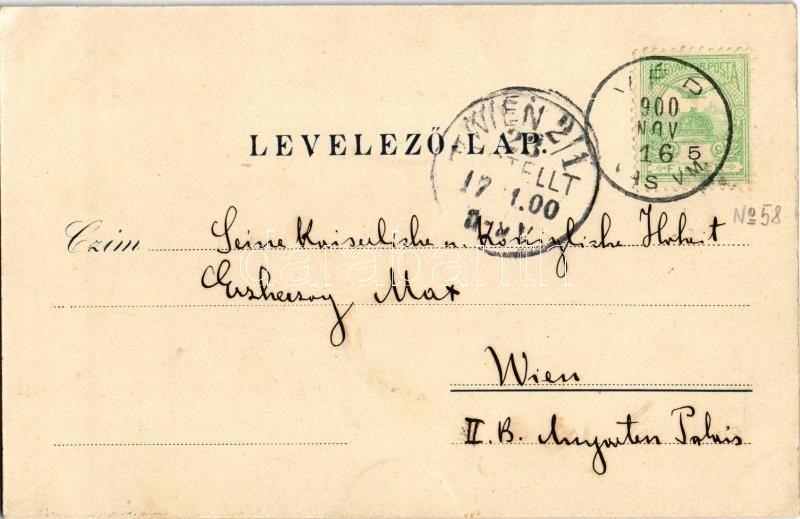 MAGYAR KIR. POSTA
900
NOV
16 5
VAS VM.
WIEN 2/1
BESTELLT
17 11.00
LEVELEZŐ-LAP.
No 58
Czim Seine Kaiserliche u. Königliche Hoheit
Erzherzog Max
darabanth
Wien
II. B. Augarten Palais